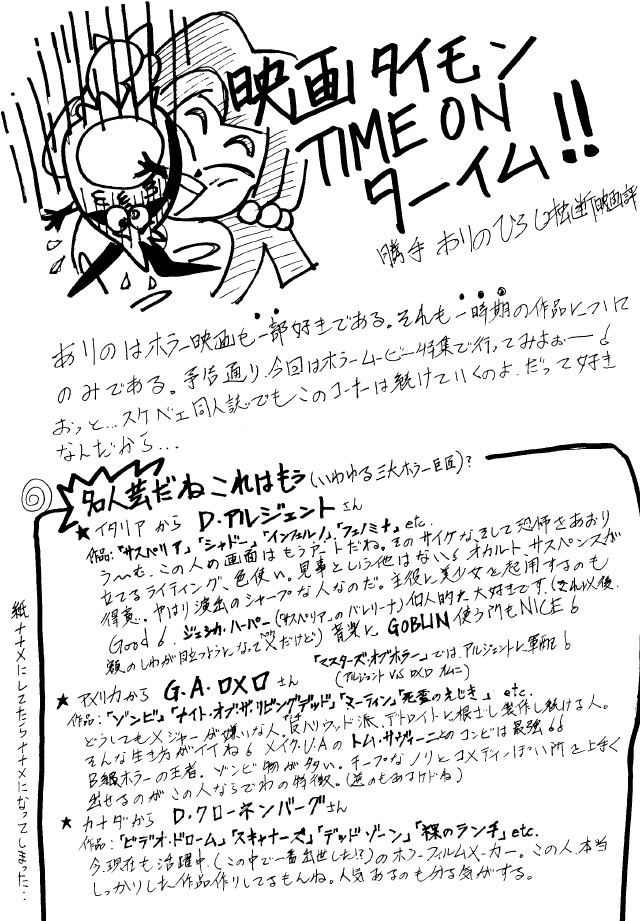 映画タイモン
TIME ON
ターイム!!
勝手 ありのひろし独断映画評
ありのはホラー映画も一部好きである。それも一時期の作品について
のみである。予告通り、今回はホラームービー特集で行ってみよぉー!
おっと…スケベェ同人誌でもこのコーナーは続けていくのよ。だって好き
なんだから…
名人芸だねこれはもう(いわゆる三大ホラー巨匠)?
★イタリアから D・アルジェントさん
作品:「サスペリア」「シャドー」「インフェルノ」「フェノミナ」etc.
う〜む、この人の画面はもうアートだね。そのサイケな、そして恐怖をあおり
立てるライティング、色使い。見事という他はない!オカルト、サスペンスが
得意。やはり演出のシャープな人なのだ。主役に美少女を起用するのも
Good! ジェシカ・ハーパー(サスペリアのバレリーナ)個人的に大好きです。(それ以後、
額のしわが目立つようになってダメだけど)音楽に GOBLIN 使う所もNICE!
「マスターズ・オブ・ホラー」では、アルジェントに軍配!
(アルジェント VS ロメロ オムニ)
★アメリカから G.A.ロメロさん
作品:「ゾンビ」「ナイト・オブ・ザ・リビングデッド」「マーティン」「死霊のえじき」etc.
どうしてもメジャーが嫌いな人。反ハリウッド派、デトロイトに根ざし製作し続ける人。
そんな生き方がイイね! メイク・U.Aのトム・サヴィーニとのコンビは最強!!
B級ホラーの王者。ゾンビ物が多い。チープなノリとコメディっぽい所を上手く
出せるのがこの人ならでわの特徴。(逆のもあるけどね)
★カナダから D.クローネンバーグさん
作品:「ビデオ・ドローム」「スキャナーズ」「デッドゾーン」「裸のランチ」etc.
今、現在も活躍中。(この中で一番出世した!?)のホラーフィルムメーカー。この人、本当
しっかりした作品作りしてるもんね。人気あるのも分る気がする。
紙ナナメにしてたらナナメになってしまった…